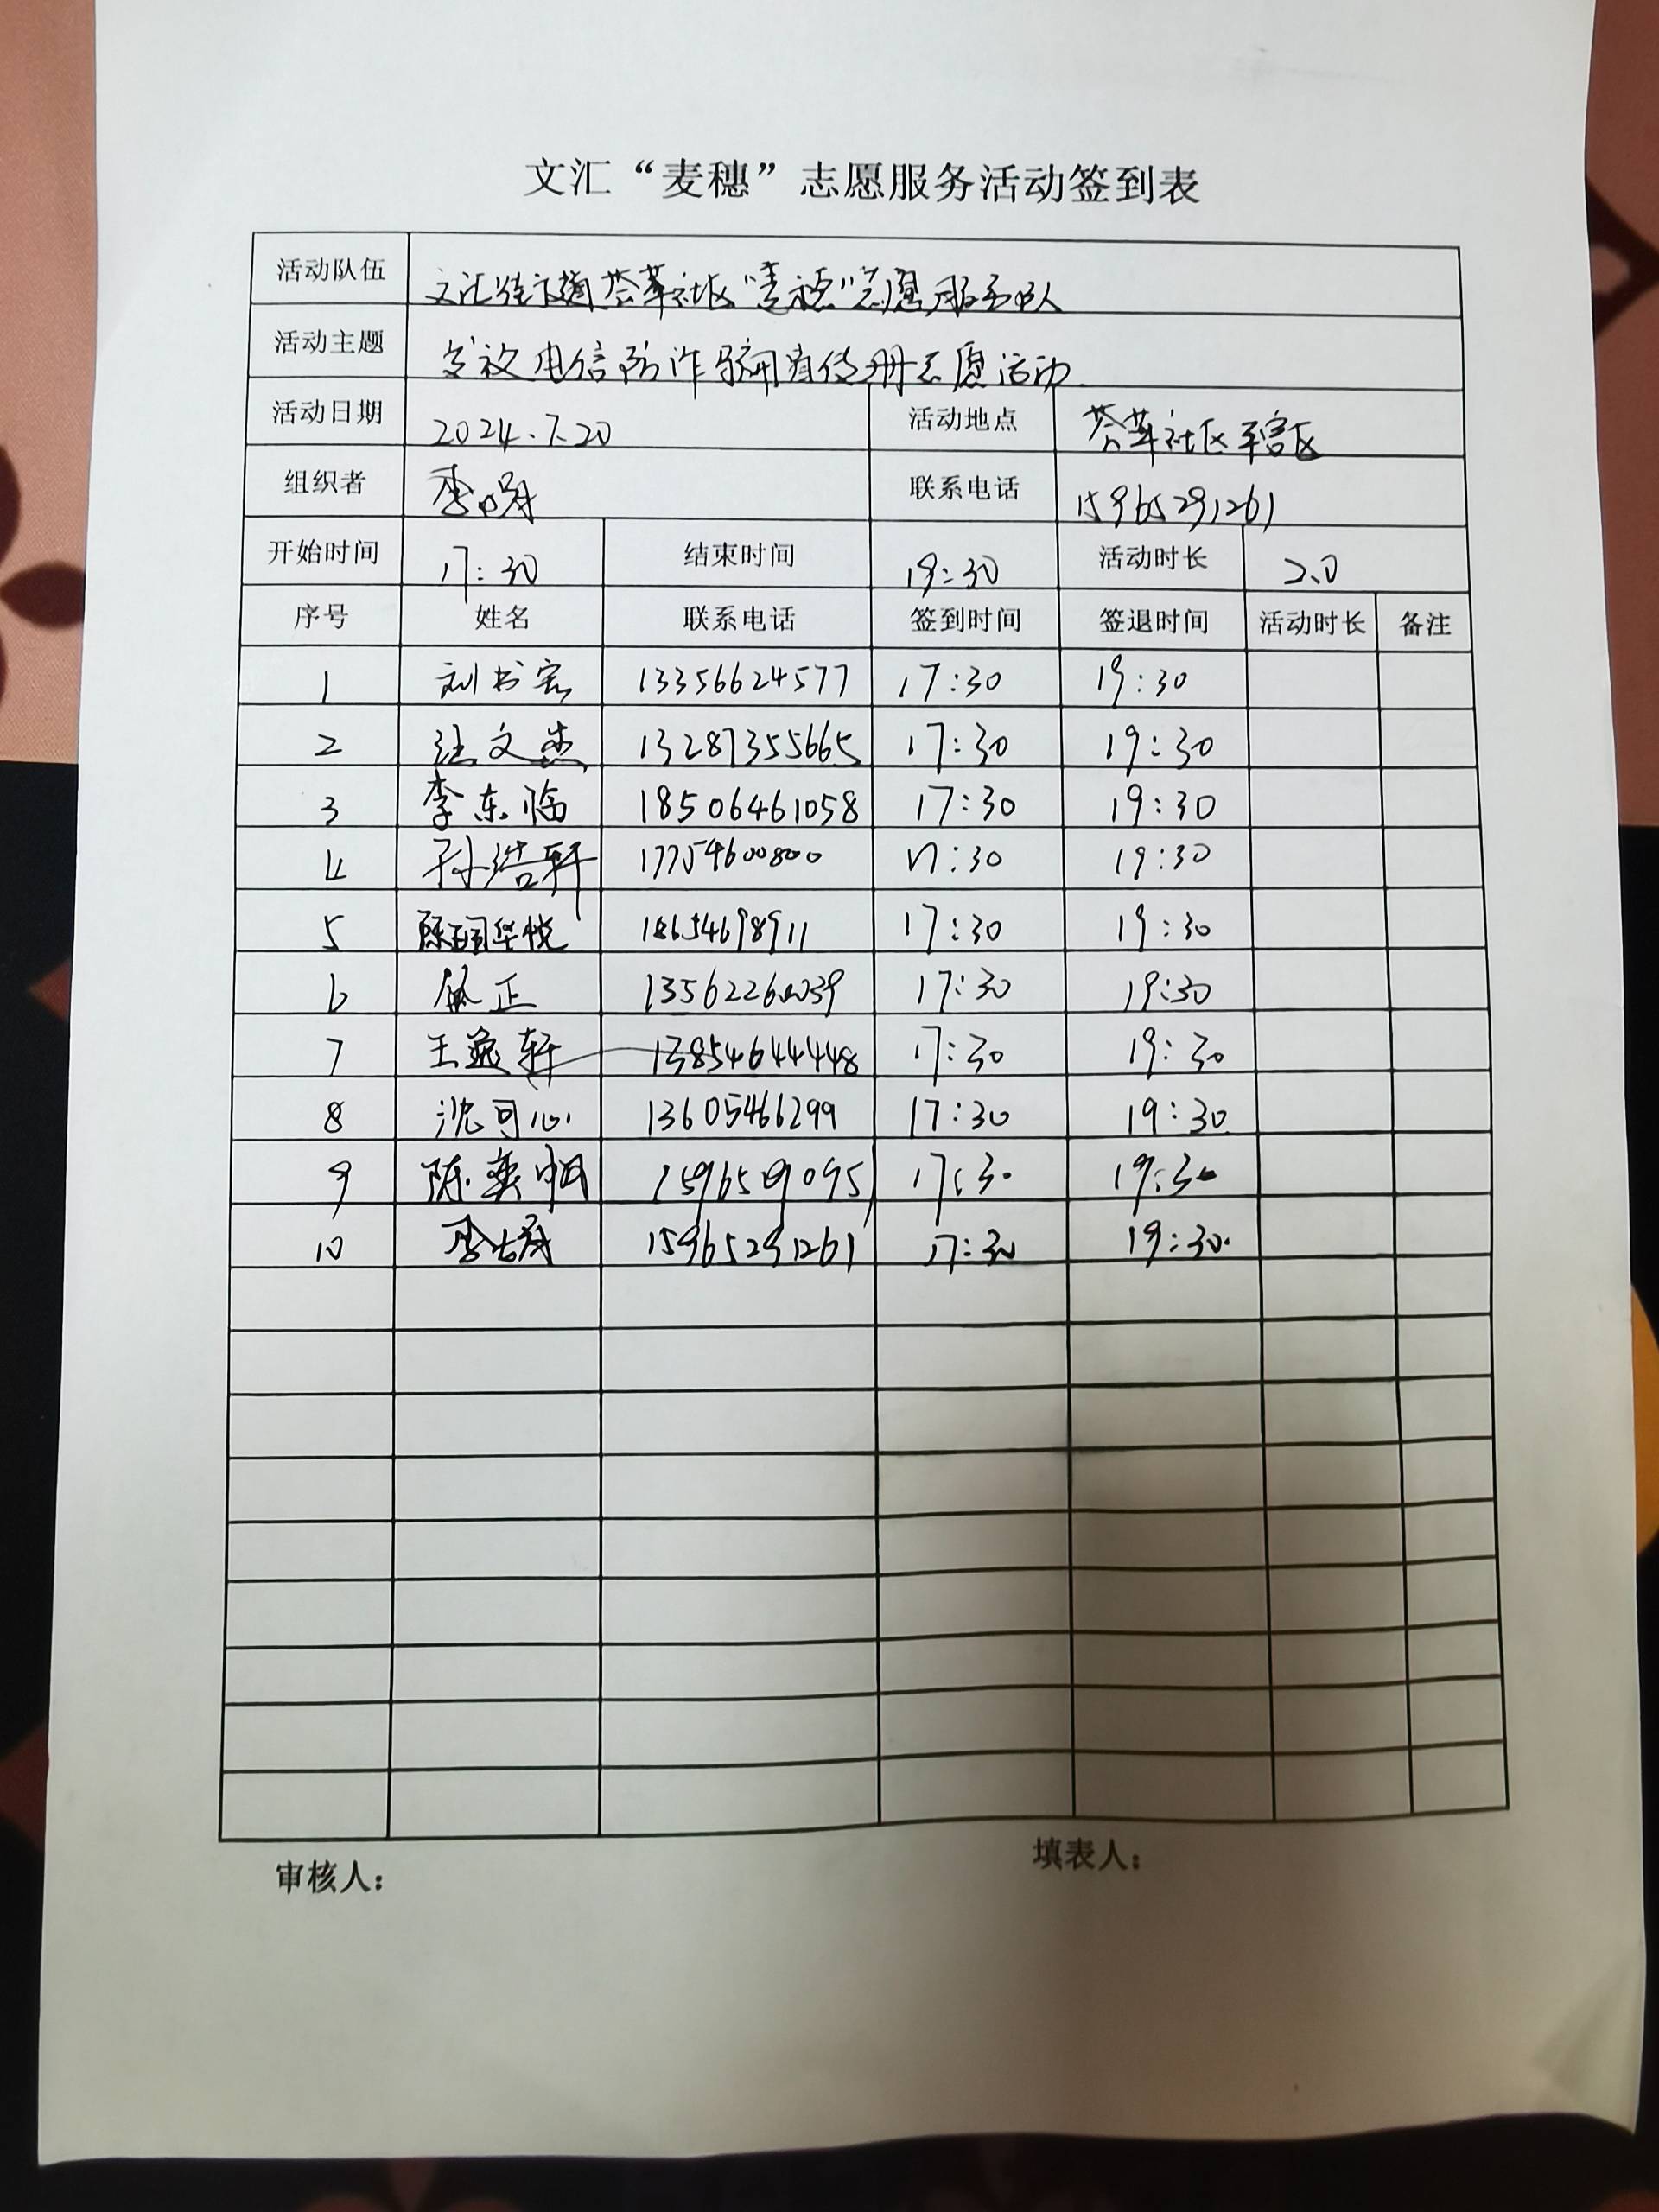 文汇“麦穗”志愿服务活动签到表
活动队伍 文汇街道荟萃社区“麦穗”志愿服务队
活动主题 发放电信防诈骗宣传册志愿活动
活动日期 2024.7.20 活动地点 荟萃社区辖区
组织者 李 联系电话 15965291261
开始时间 17:30 结束时间 19:30 活动时长 2.0
序号 姓名 联系电话 签到时间 签退时间 活动时长 备注
1 刘书宏 13356624577 17:30 19:30
2 汪文杰 13287355665 17:30 19:30
3 李东临 18506461058 17:30 19:30
4 孙浩轩 17754600800 17:30 19:30
5 18654698911 17:30 19:30
6 正 17:30 19:30
7 王逸轩 13854644448 17:30 19:30
8 沈可心 13605466299 17:30 19:30
9 陈奕 17:30 19:30
10 李 15965291261 17:30 19:30
审核人： 填表人：